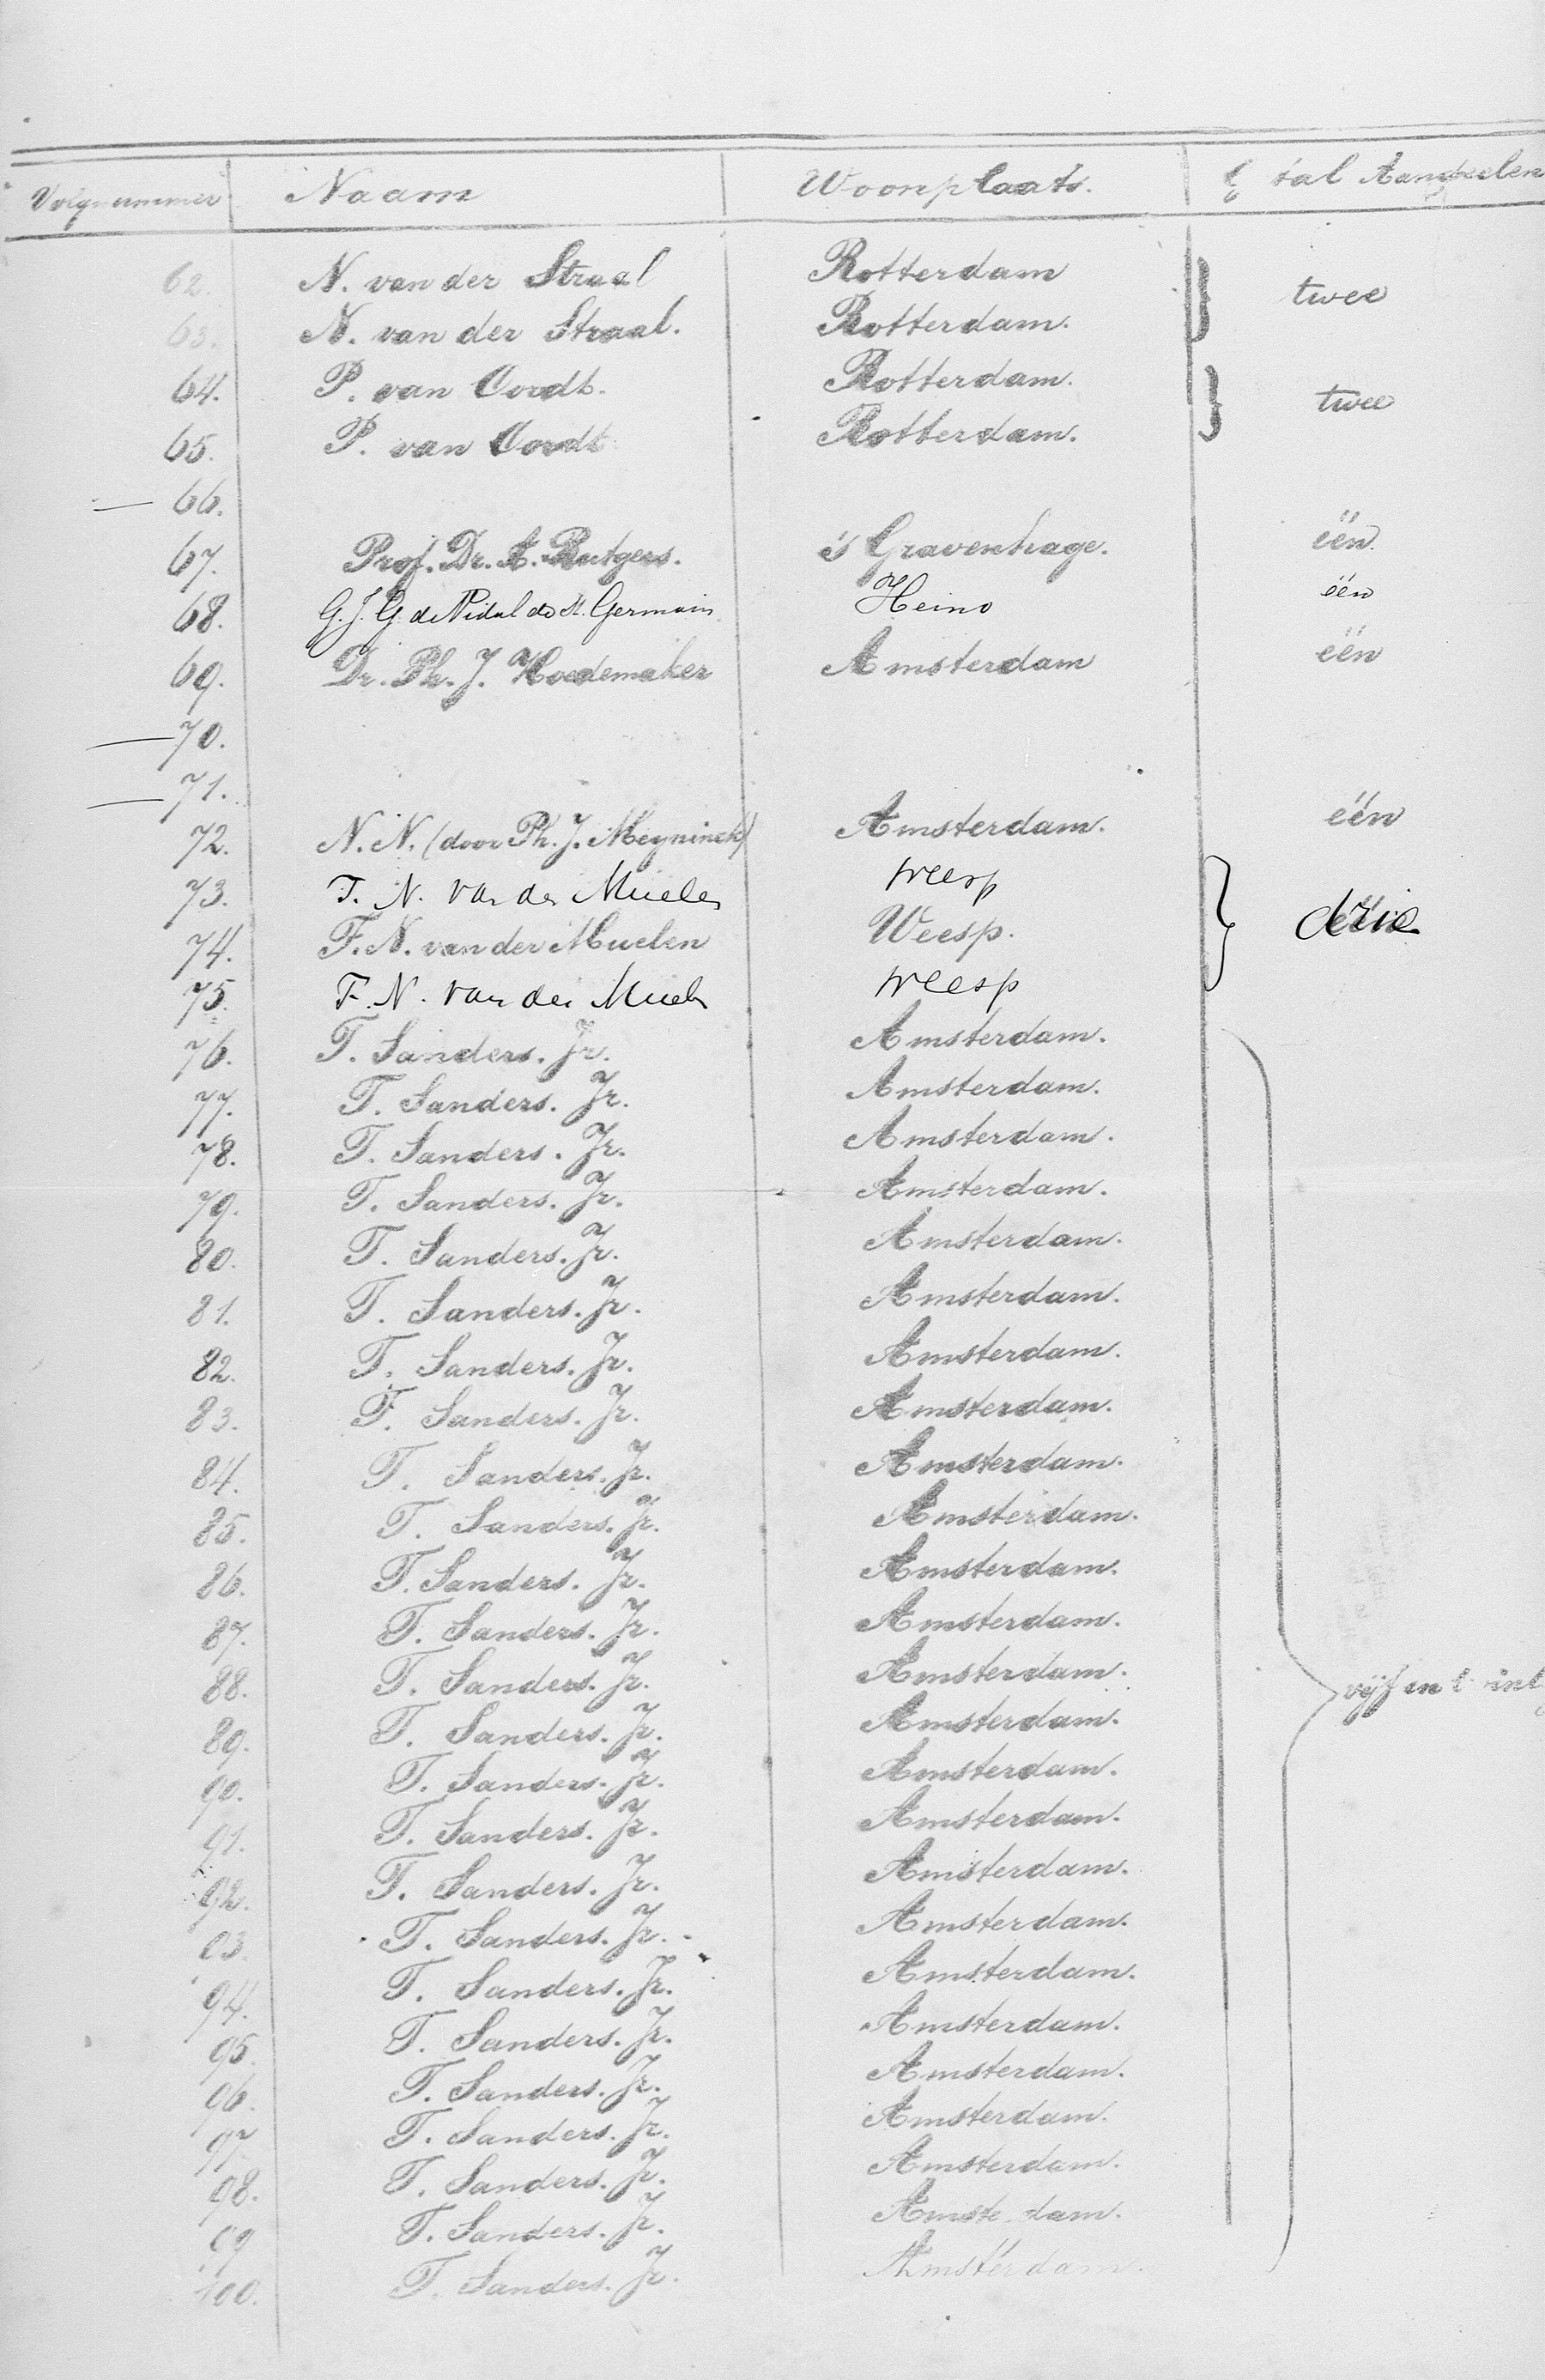 Volgnummer Naam Woonplaats. tal Aandeelen
62. N. van der Straal Rotterdam twee
63. N. van der Straal. Rotterdam.
64. P. van Oordt. Rotterdam. twee
65. P. van Oordt Rotterdam.
66.
67. Prof. Dr. A. Rutgers. 's Gravenhage. één.
68. G. J. G. de Vidal de St. Germain Heino één
69. Dr. Ph. J. Hoedemaker Amsterdam één
70.
71.
72. N. N. (door Ph. J. Meyninck) Amsterdam. één
73. F. N. van der Muelen Weesp
74. F. N. van der Muelen Weesp. drie
75. F. N. van der Muelen Weesp
76. T. Sanders. Jr. Amsterdam.
77. T. Sanders. Jr. Amsterdam.
78. T. Sanders. Jr. Amsterdam.
79. T. Sanders. Jr. Amsterdam.
80. T. Sanders. Jr. Amsterdam.
81. T. Sanders. Jr. Amsterdam.
82. T. Sanders. Jr. Amsterdam.
83. T. Sanders. Jr. Amsterdam.
84. T. Sanders. Jr. Amsterdam.
85. T. Sanders. Jr. Amsterdam.
86. T. Sanders. Jr. Amsterdam.
87. T. Sanders. Jr. Amsterdam.
88. T. Sanders. Jr. Amsterdam. vijf en twint
89. T. Sanders. Jr. Amsterdam.
90. T. Sanders. Jr. Amsterdam.
91. T. Sanders. Jr. Amsterdam.
92. T. Sanders. Jr. Amsterdam.
93. T. Sanders. Jr. Amsterdam.
94. T. Sanders. Jr. Amsterdam.
95. T. Sanders. Jr. Amsterdam.
96. T. Sanders. Jr. Amsterdam.
97 T. Sanders. Jr. Amsterdam.
98. T. Sanders. Jr. Amsterdam.
99 T. Sanders. Jr. Amsterdam.
100. T. Sanders. Jr. Amsterdam.